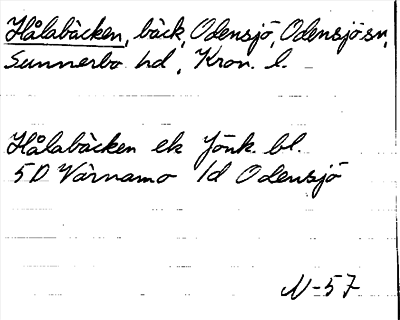 Hålabäcken, bäck, Odensjö, Odensjö sn,
Sunnerbo hd, Kron. l.
Hålabäcken ek Jönk. bl.
5D Värnamo 1d Odensjö
N-57